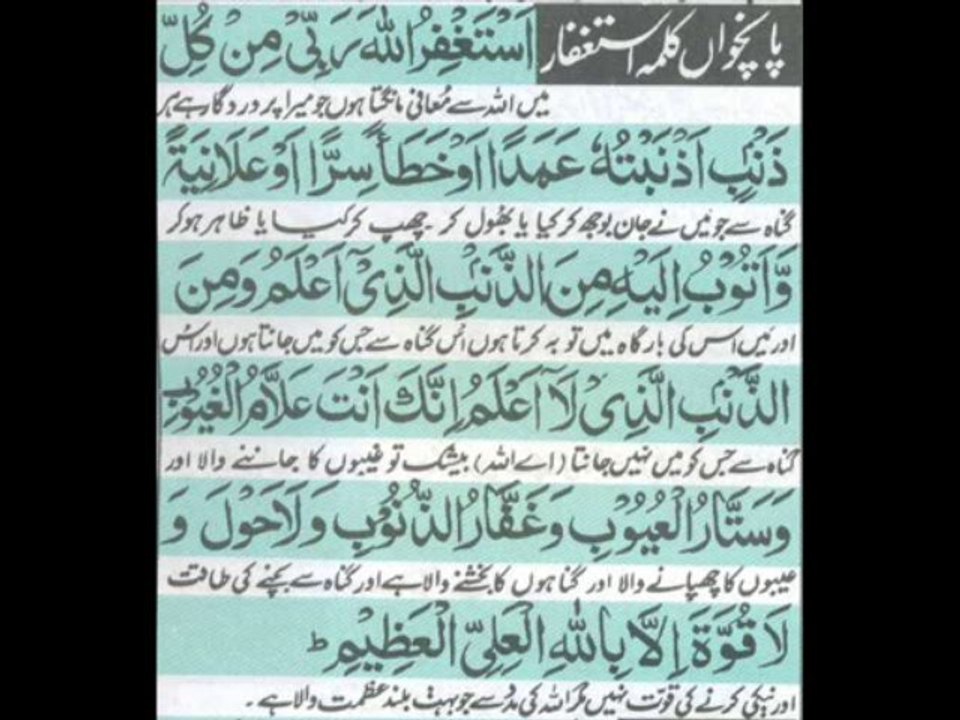 پانچواں کلمہ استغفار
اَسْتَغْفِرُ اللهَ رَبِّیْ مِنْ کُلِّ
میں اللہ سے معافی مانگتا ہوں جو میرا پروردگار ہے ہر
ذَنْۢبٍ اَذْنَبْتُهٗ عَمَدًا اَوْ خَطَأً سِرًّا اَوْ عَلَانِيَةً
گناہ سے جو میں نے جان بوجھ کر کیا یا بھول کر ۔ چھپ کر کیا یا ظاہر ہو کر
وَّاَتُوْبُ اِلَيْهِ مِنَ الذَّنْۢبِ الَّذِیْٓ اَعْلَمُ وَمِنَ
اور میں اس کی بارگاہ میں توبہ کرتا ہوں اُس گناہ سے جس کو میں جانتا ہوں اور اُس
الذَّنْۢبِ الَّذِیْ لَآ اَعْلَمُ اِنَّكَ اَنْتَ عَلَّامُ الْغُيُوْبِ
گناہ سے جس کو میں نہیں جانتا (اے اللہ) بیشک تو غیبوں کا جاننے والا اور
وَسَتَّارُ الْعُيُوْبِ وَغَفَّارُ الذُّنُوْبِ وَلَا حَوْلَ وَ
عیبوں کا چھپانے والا اور گناہوں کا بخشنے والا ہے اور گناہ سے بچنے کی طاقت
لَا قُوَّةَ اِلَّا بِاللهِ الْعَلِیِّ الْعَظِيْمِ ؕ
اور نیکی کرنے کی قوت نہیں مگر اللہ کی مدد سے جو بہت بلند عظمت والا ہے ۔